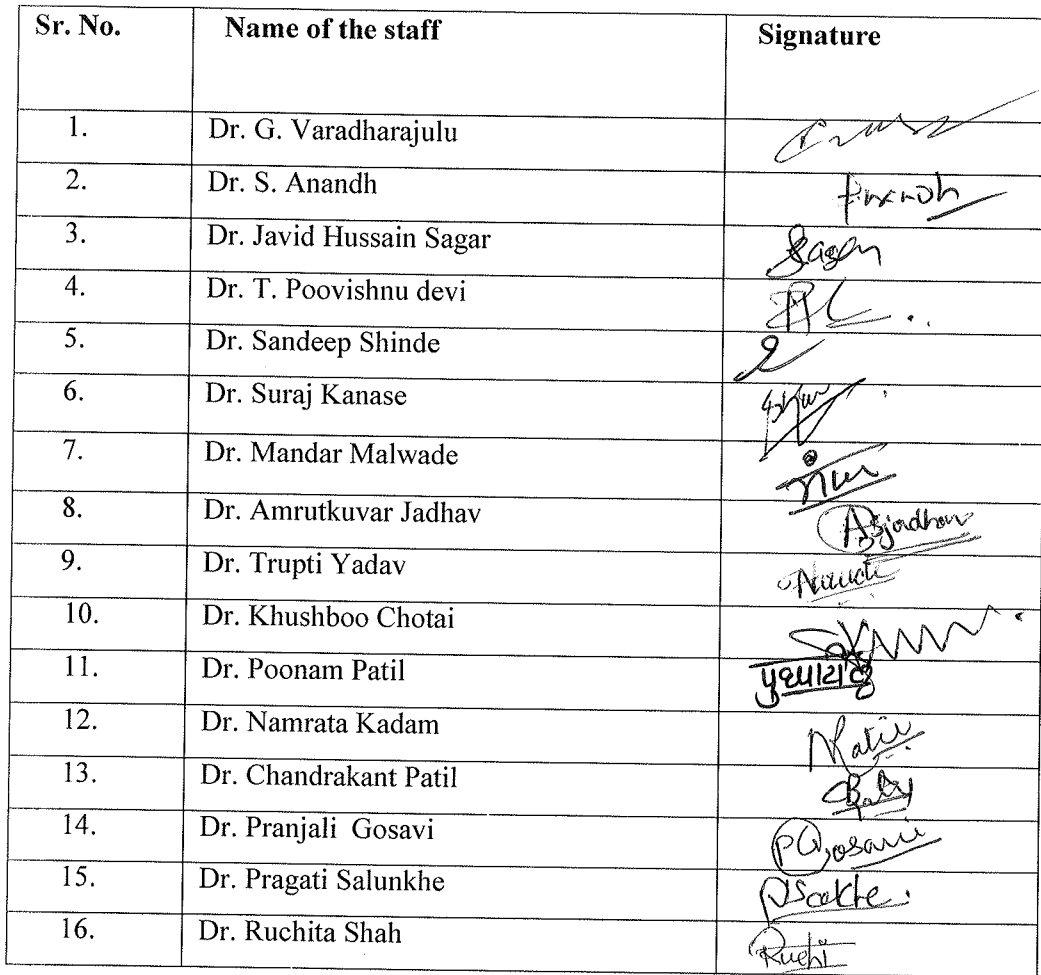 Sr. No. Name of the staff Signature
1. Dr. G. Varadharajulu
2. Dr. S. Anandh
3. Dr. Javid Hussain Sagar Sagar
4. Dr. T. Poovishnu devi
5. Dr. Sandeep Shinde
6. Dr. Suraj Kanase
7. Dr. Mandar Malwade
8. Dr. Amrutkuvar Jadhav ASjadhav
9. Dr. Trupti Yadav
10. Dr. Khushboo Chotai
11. Dr. Poonam Patil
12. Dr. Namrata Kadam
13. Dr. Chandrakant Patil
14. Dr. Pranjali Gosavi PGosavi
15. Dr. Pragati Salunkhe
16. Dr. Ruchita Shah Ruchi